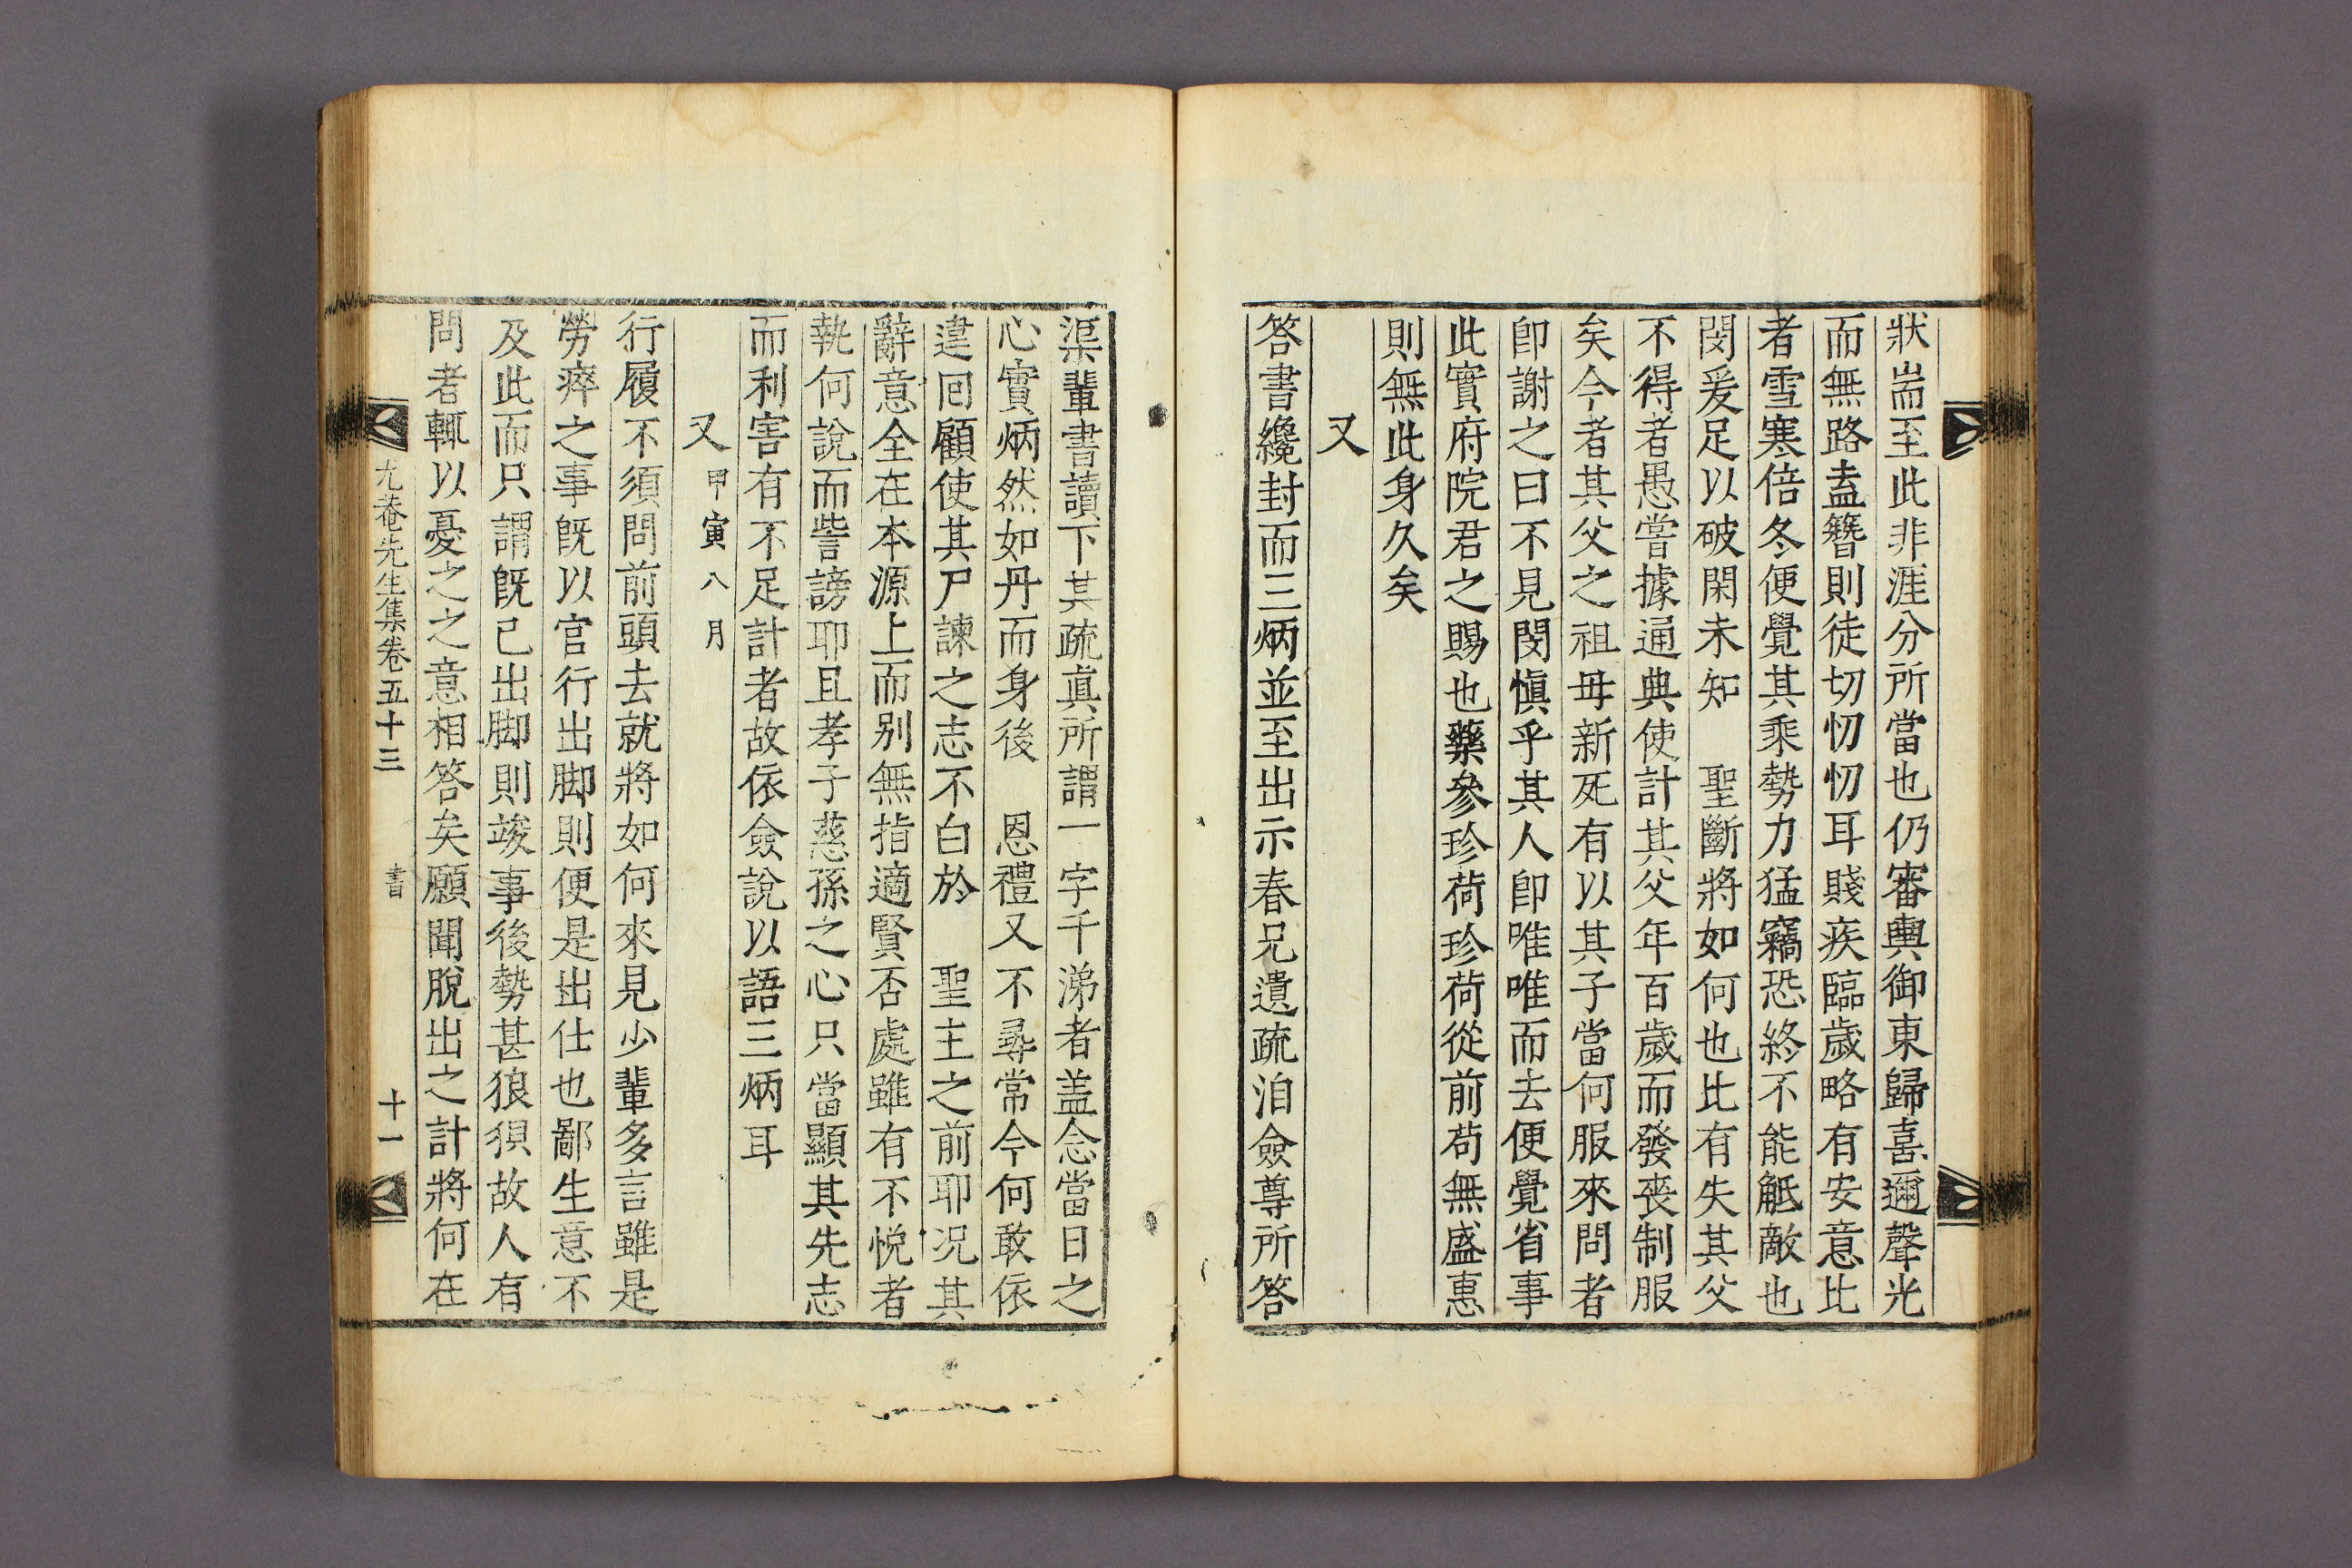 狀耑至此非涯分所當也仍審輿御東歸喜邇聲光
而無路盍簪則徒切忉忉耳賤疾臨歲略有安意比
者雪寒倍冬便覺其乘勢力猛竊恐終不能觝敵也
閔爰足以破閑未知 聖斷將如何也比有失其父
不得者愚嘗據通典使計其父年百歲而發喪制服
矣今者其父之祖母新死有以其子當何服來問者
卽謝之曰不見閔愼乎其人卽唯唯而去便覺省事
此實府院君之賜也藥參珍荷珍荷從前苟無盛惠
則無此身久矣
又
答書纔封而三炳並至出示春兄遺疏洎僉尊所答
渠輩書讀下其疏眞所謂一字千涕者盖念當日之
心實炳然如丹而身後 恩禮又不尋常今何敢依
違回顧使其尸諫之志不白於 聖主之前耶况其
辭意全在本源上而别無指適賢否處雖有不悅者
執何說而訾謗耶且孝子慈孫之心只當顯其先志
而利害有不足計者故依僉說以語三炳耳
又 甲寅八月
行履不須問前頭去就將如何來見少輩多言雖是
勞瘁之事旣以官行出脚則便是出仕也鄙生意不
及此而只謂旣已出脚則竣事後勢甚狼狽故人有
問者輒以憂之之意相答矣願聞脫出之計將何在
尤菴先生集卷五十三 書 十一